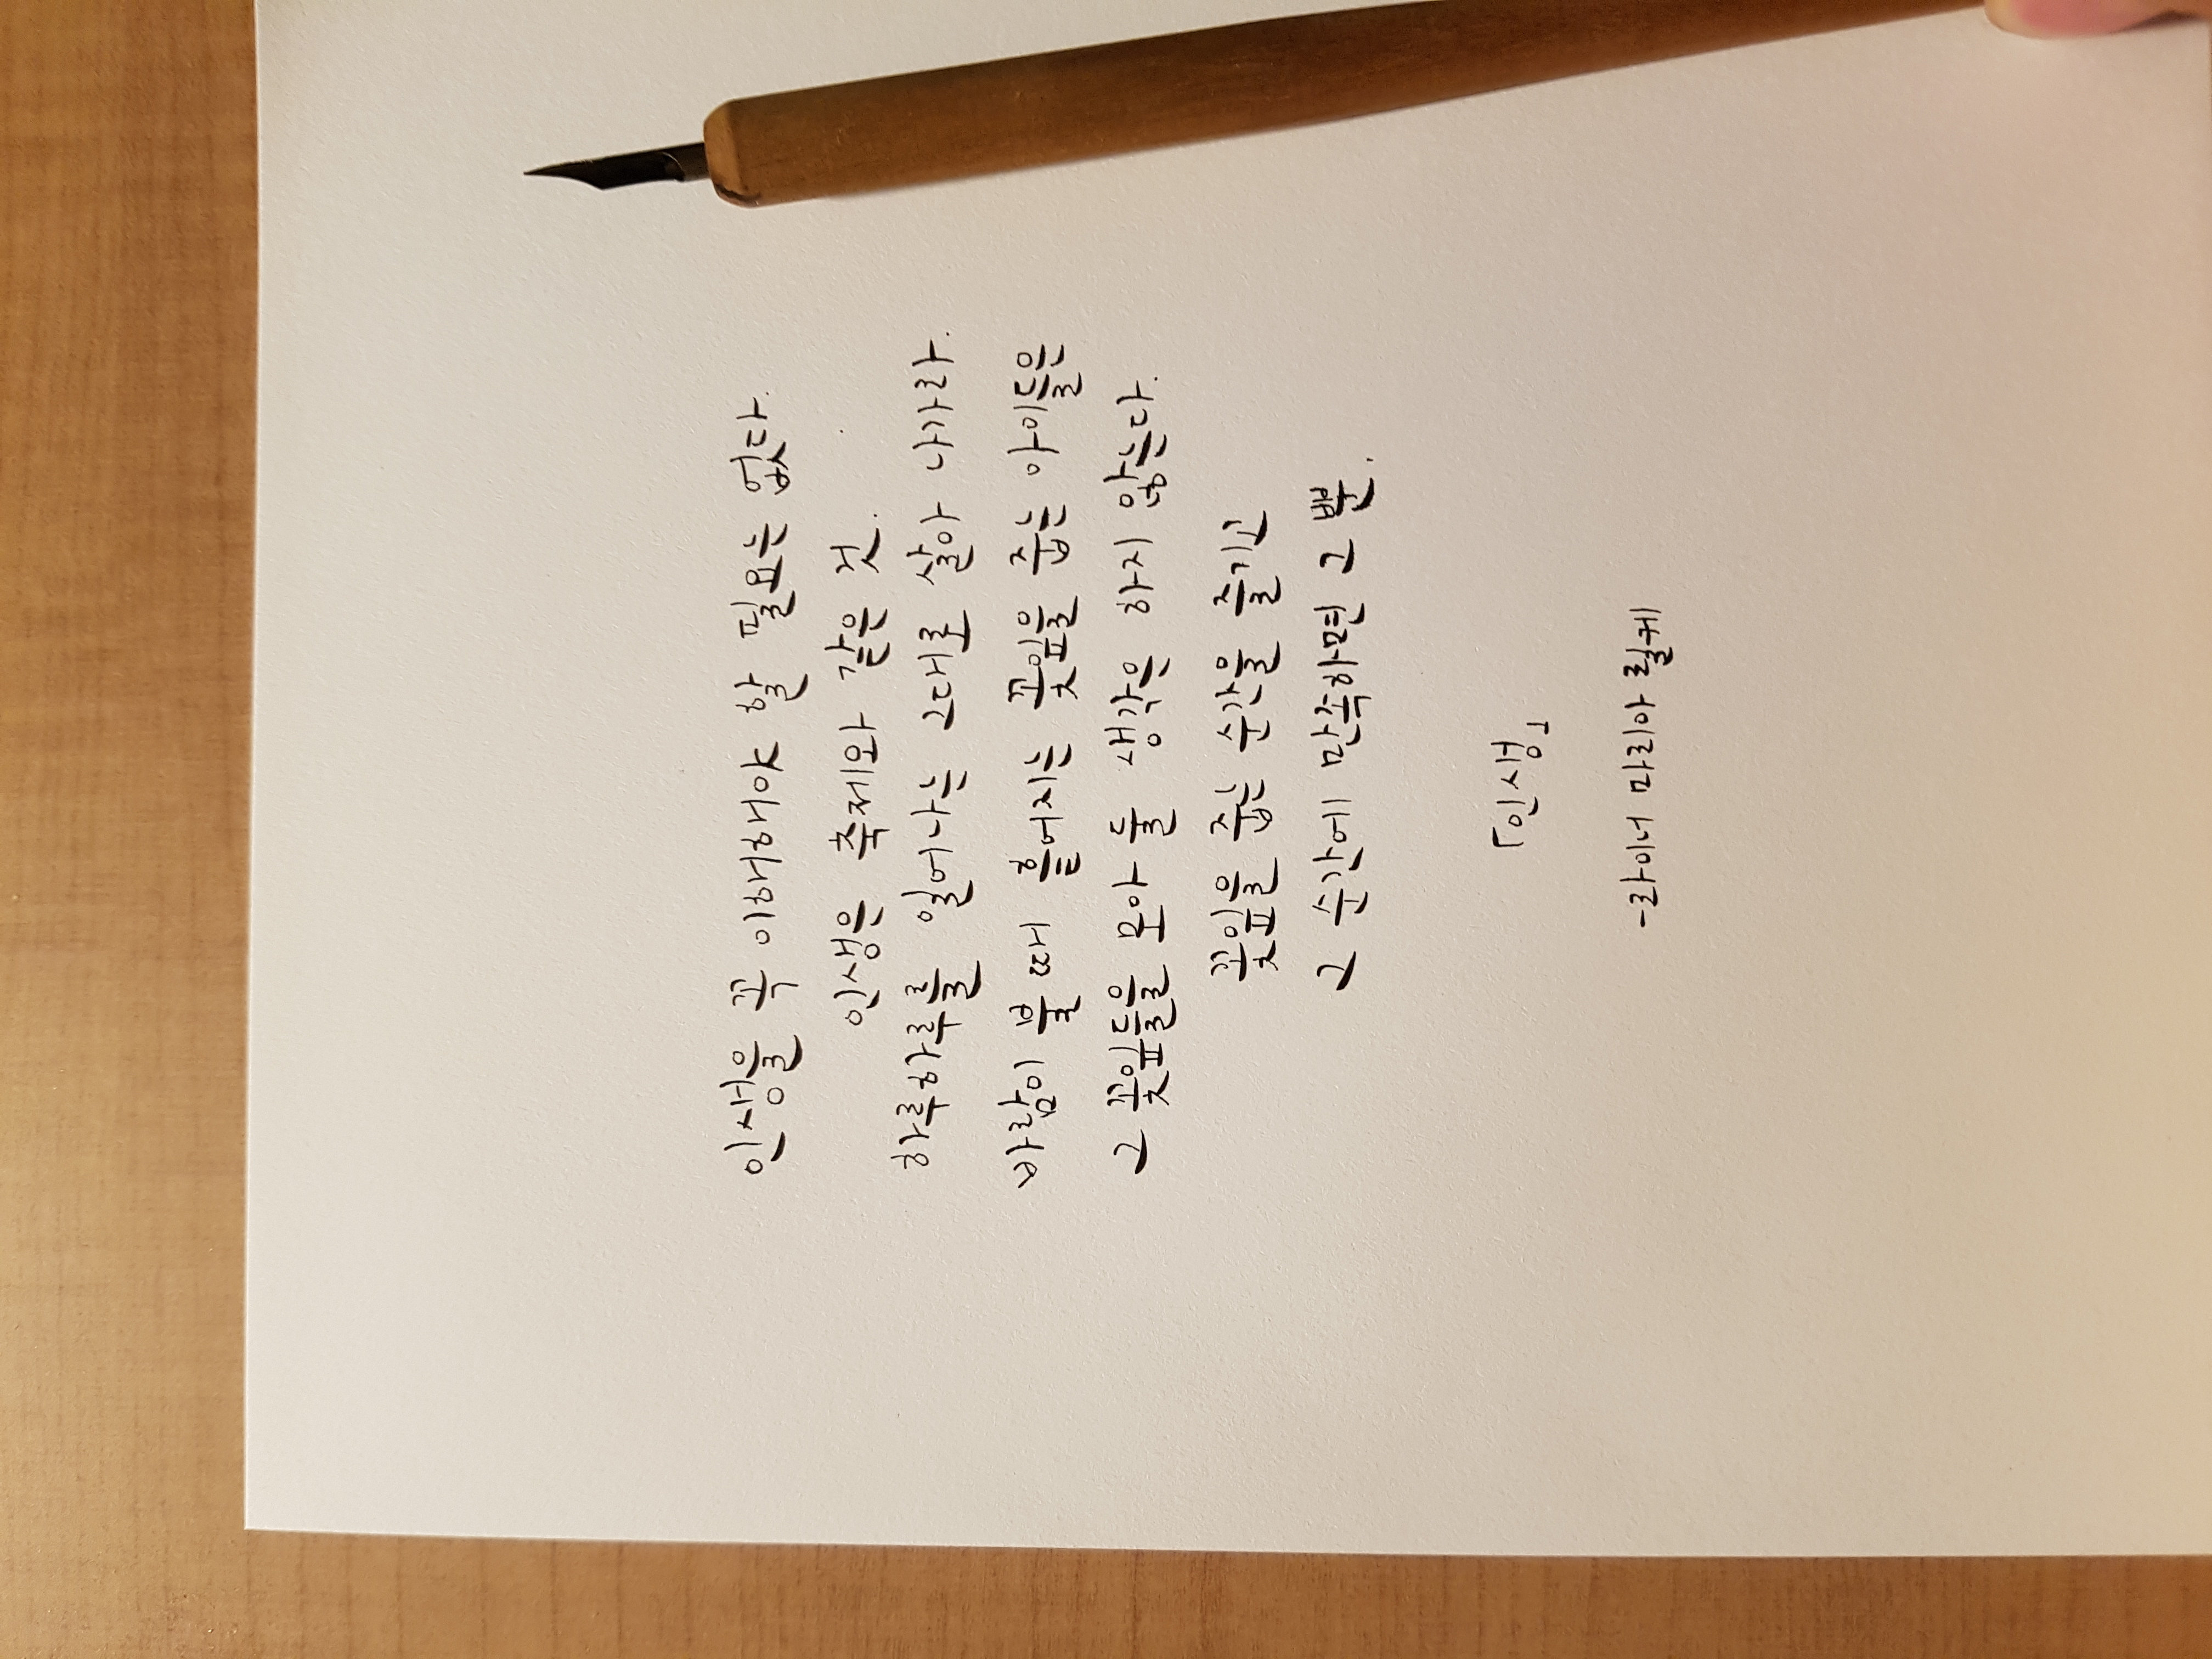 인생을 꼭 이해해야 할 필요는 없다.
인생은 축제와 같은 것.
하루하루를 일어나는 그대로 살아 나가라.
바람이 불 때 흩어지는 꽃잎을 줍는 아이들은
그 꽃잎들을 모아 둘 생각은 하지 않는다.
꽃잎을 줍는 순간을 즐기고
그 순간에 만족하면 그 뿐.
「인생」
-라이너 마리아 릴케